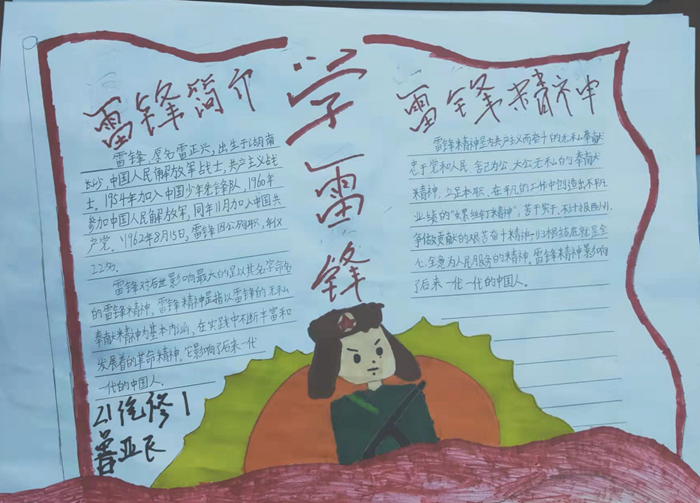 学雷锋
雷锋简介
雷锋,原名雷正兴,出生于湖南
长沙,中国人民解放军战士,共产主义战
士,1954年加入中国少年先锋队,1960年
参加中国人民解放军,同年11月加入中国共
产党。1962年8月15日,雷锋因公殉职,年仅
22岁。
雷锋对后世影响最大的是以其名字命名
的雷锋精神,雷锋精神是指以雷锋的无私
奉献精神为基本内涵,在实践中不断丰富和
发展着的革命精神,它影响了后来一代
一代的中国人。
21汽修1
雷锋精神
雷锋精神是为共产主义而奋斗的无私奉献
忠于党和人民、舍己为公、大公无私的奉献
精神,立足本职、在平凡的工作中创造出不平凡
业绩的“螺丝钉精神”,苦干实干、不计报酬、
争做贡献的艰苦奋斗精神,归根结底就是全
心全意为人民服务的精神,雷锋精神影响
了后来一代一代的中国人。